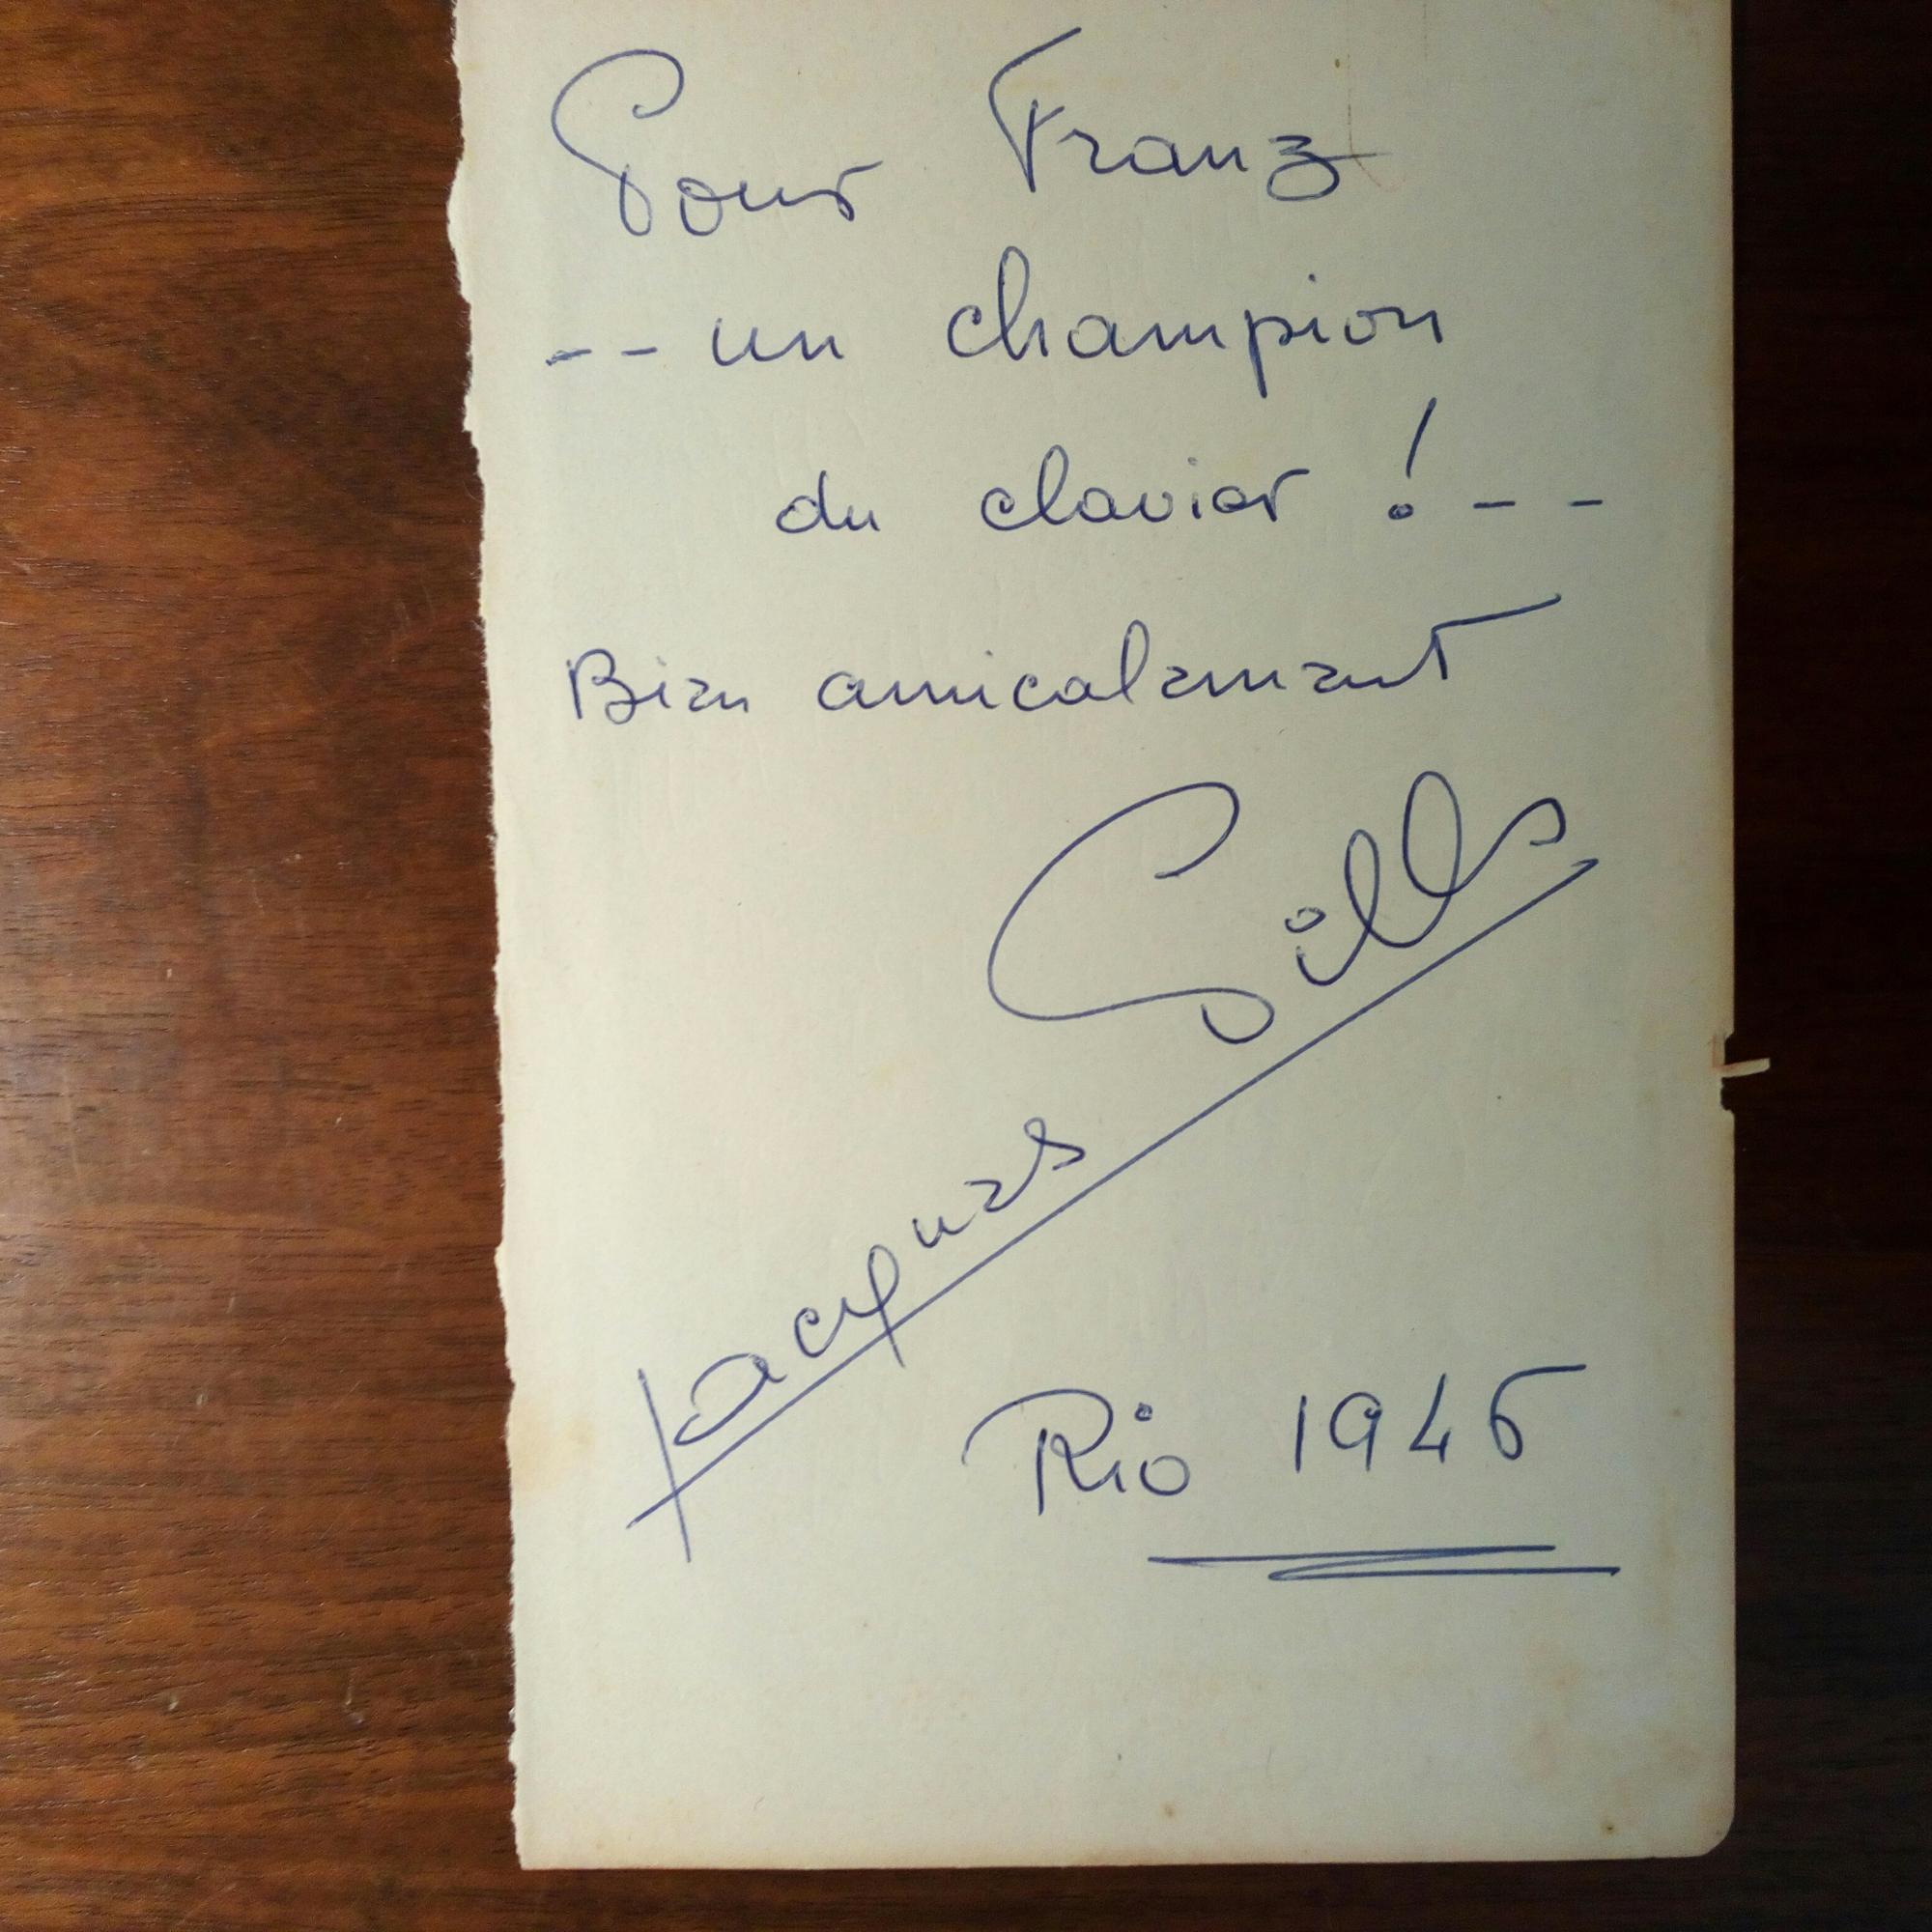 Pour Franz
-- un champion
du clavier ! --
Bien amicalement
Jacques
Rio 1946